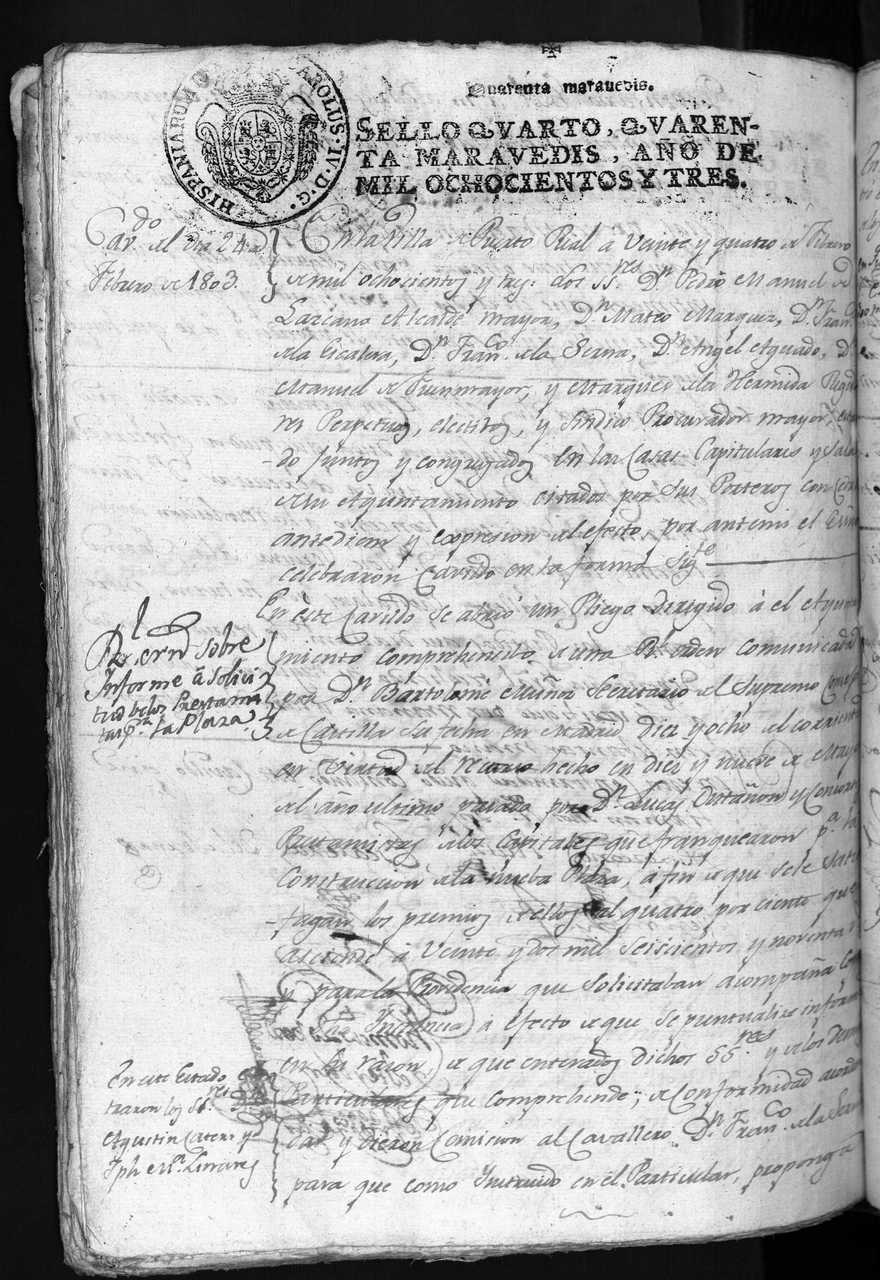 HISPANIARUM
CAROLUS·IV·D·G·
Quarenta maravedis.
SELLO QVARTO, QVAREN-
TA MARAVEDIS, AÑO DE
MIL OCHOCIENTOS Y TRES.
Cavdo. del dia 24 de
Febrero de 1803.
En la Villa de Puerto Real a veinte y quatro de Febrero
de mil ochocientos y tres: los SSres. Dn. Pedro Manuel de
Lazcano Alcalde mayor, Dn. Mateo Marquez, Dn. Franco.
de la Escalera, Dn. Franco. de la Serna, Dn. Angel Aguado, Dn.
Manuel de mayor, y Marques de la Hermida Regido
res Perpetuos, electivos, y Sindico Procurador mayor, estan
do juntos y congregados en las Casas Capitulares y Sala
de su Ayuntamiento citados por sus Porteros con
antediem y expresion del efecto, por antemi el
celebraron Cavildo en la forma sigte.
En este Cavildo se abrio un Pliego dirigido à el Ayunta
miento comprehensivo de una Rl. orden comunicada
por Dn. Bartolomé Muñoz Secretario del Supremo Consejo
de Castilla su fecha en Madrid diez y ocho del corriente
en virtud del recurso hecho en diez y nueve de Mayo
del año ultimo pasado por Dn. Lucas y Consortes
Prestamistas de los Capitales que franquearon pa. la
Construccion de la nueba Plaza, à fin de que se le satis
fagan los premios de ellos al quatro por ciento que
asciende à Veinte y dos mil seiscientos y noventa
y para la Providencia que solicitaban acompaña
Instancia à efecto de que se puntualize informe
en su razon, de que enterados dichos SSres. y de los demas
Particulares que comprehende; de Conformidad acorda
ron y dieron Comision al Cavallero Dn. Franco. de la Serna
para que como Instruido en el Particular, proponga
Rl. orn. sobre
Informe à solici
tud de los Prestamis
tas pa. la Plaza
En este Estado en
traron los SSres. Dn.
Agustin y
Jph Ma. Linares